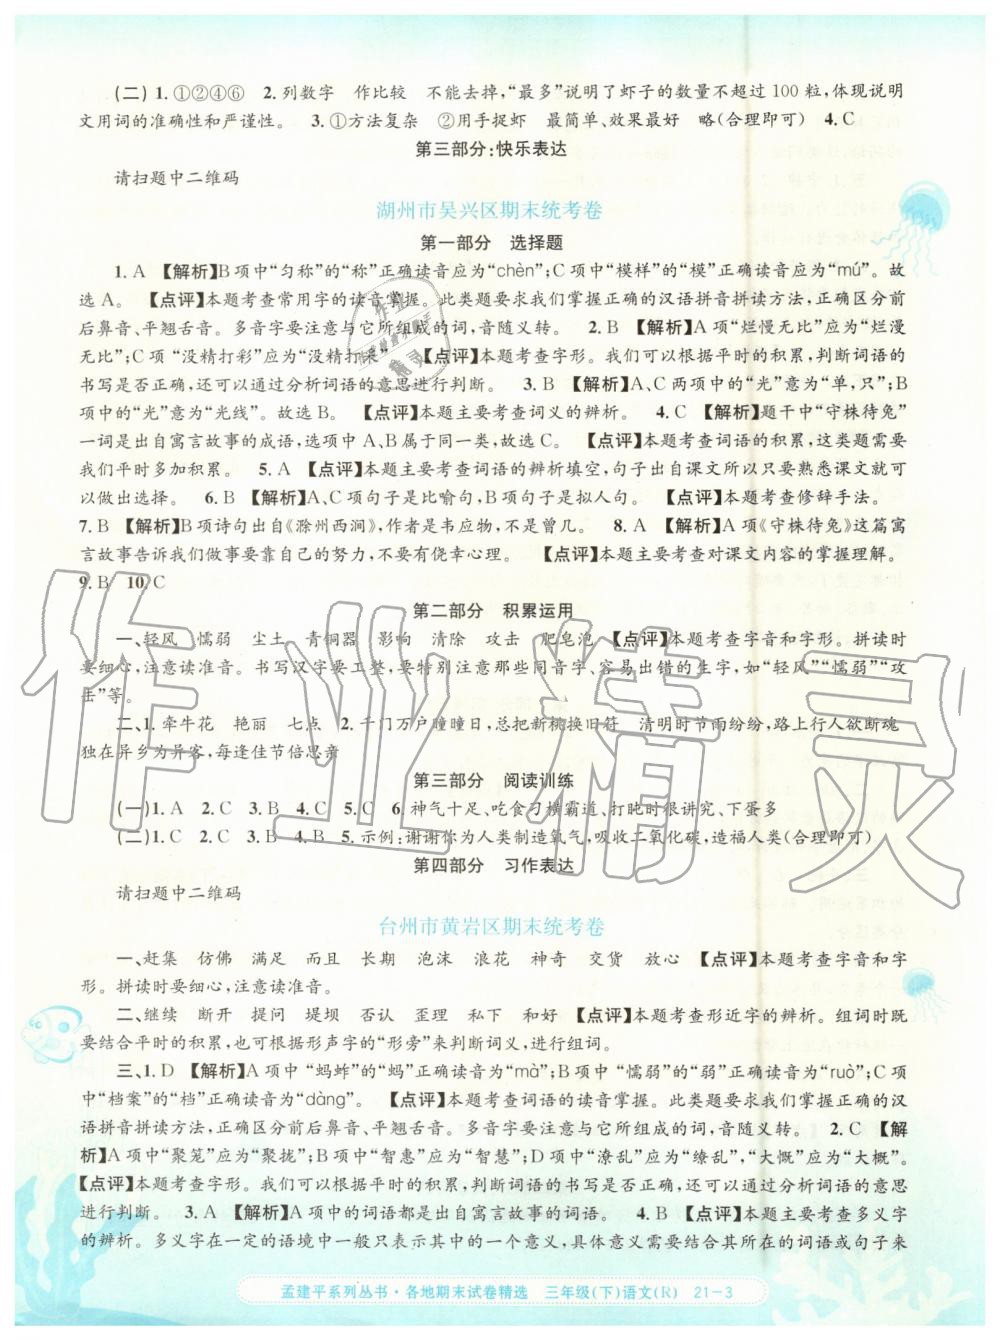 (二)1.①②④⑥ 2.列数字 作比较 不能去掉,“最多”说明了虾子的数量不超过100粒,体现说明
文用词的准确性和严谨性。 3.①方法复杂 ②用手捉虾 最简单、效果最好 略(合理即可) 4.C
第三部分:快乐表达
请扫题中二维码
湖州市吴兴区期末统考卷
第一部分 选择题
1.A 【解析】B项中“匀称”的“称”正确读音应为“chèn”;C项中“模样”的“模”正确读音应为“mú”。故
选A。 【点评】本题考查常用字的读音掌握。此类题要求我们掌握正确的汉语拼音拼读方法,正确区分前
后鼻音、平翘舌音。多音字要注意与它所组成的词,音随义转。 2.B 【解析】A项“烂慢无比”应为“烂漫
无比”;C项“没精打彩”应为“没精打采”。 【点评】本题考查字形。我们可以根据平时的积累,判断词语的
书写是否正确,还可以通过分析词语的意思进行判断。 3.B 【解析】A、C两项中的“光”意为“单,只”;B
项中的“光”意为“光线”。故选B。 【点评】本题主要考查词义的辨析。 4.C 【解析】题干中“守株待兔”
一词是出自寓言故事的成语,选项中A、B属于同一类,故选C。 【点评】本题考查词语的积累,这类题需要
我们平时多加积累。 5.A 【点评】本题主要考查词语的辨析填空,句子出自课文所以只要熟悉课文就可
以做出选择。 6.B 【解析】A、C项句子是比喻句,B项句子是拟人句。 【点评】本题考查修辞手法。
7.B 【解析】B项诗句出自《滁州西涧》,作者是韦应物,不是曾几。 8.A 【解析】A项《守株待兔》这篇寓
言故事告诉我们做事要靠自己的努力,不要有侥幸心理。 【点评】本题主要考查对课文内容的掌握理解。
9.B 10.C
第二部分 积累运用
一、轻风 懦弱 尘土 青铜器 影响 清除 攻击 肥皂泡 【点评】本题考查字音和字形。拼读时
要细心,注意读准音。书写汉字要工整,要特别注意那些同音字、容易出错的生字,如“轻风”“懦弱”“攻
击”等。
二、1.牵牛花 艳丽 七点 2.千门万户曈曈日,总把新桃换旧符 清明时节雨纷纷,路上行人欲断魂
独在异乡为异客,每逢佳节倍思亲
第三部分 阅读训练
(一)1.A 2.C 3.B 4.C 5.C 6.神气十足、吃食刁横霸道、打盹时很讲究、下蛋多
(二)1.C 2.C 3.B 4.B 5.示例:谢谢你为人类制造氧气,吸收二氧化碳,造福人类(合理即可)
第四部分 习作表达
请扫题中二维码
台州市黄岩区期末统考卷
一、赶集 仿佛 满足 而且 长期 泡沫 浪花 神奇 交货 放心 【点评】本题考查字音和字
形。拼读时要细心,注意读准音。
二、继续 断开 提问 堤坝 否认 歪理 私下 和好 【点评】本题考查形近字的辨析。组词时既
要结合平时的积累,也可根据形声字的“形旁”来判断词义,进行组词。
三、1.D 【解析】A项中“蚂蚱”的“蚂”正确读音为“mà”;B项中“懦弱”的“弱”正确读音为“ruò”;C项
中“档案”的“档”正确读音为“dàng”。 【点评】本题考查词语的读音掌握。此类题要求我们掌握正确的汉
语拼音拼读方法,正确区分前后鼻音、平翘舌音。多音字要注意与它所组成的词,音随义转。 2.C 【解
析】A项中“聚笼”应为“聚拢”;B项中“智惠”应为“智慧”;D项中“潦乱”应为“缭乱”,“大慨”应为“大概”。
【点评】本题考查字形。我们可以根据平时的积累,判断词语的书写是否正确,还可以通过分析词语的意思
进行判断。 3.A 【解析】A项中的词语都是出自寓言故事的词语。 4.B 【点评】本题主要考查多义字
的辨析。多义字在一定的语境中一般只表示其中的一个意义,具体意义需要结合其所在的词语或句子来
孟建平系列丛书·各地期末试卷精选 三年级(下)语文(R) 21-3
作业精灵